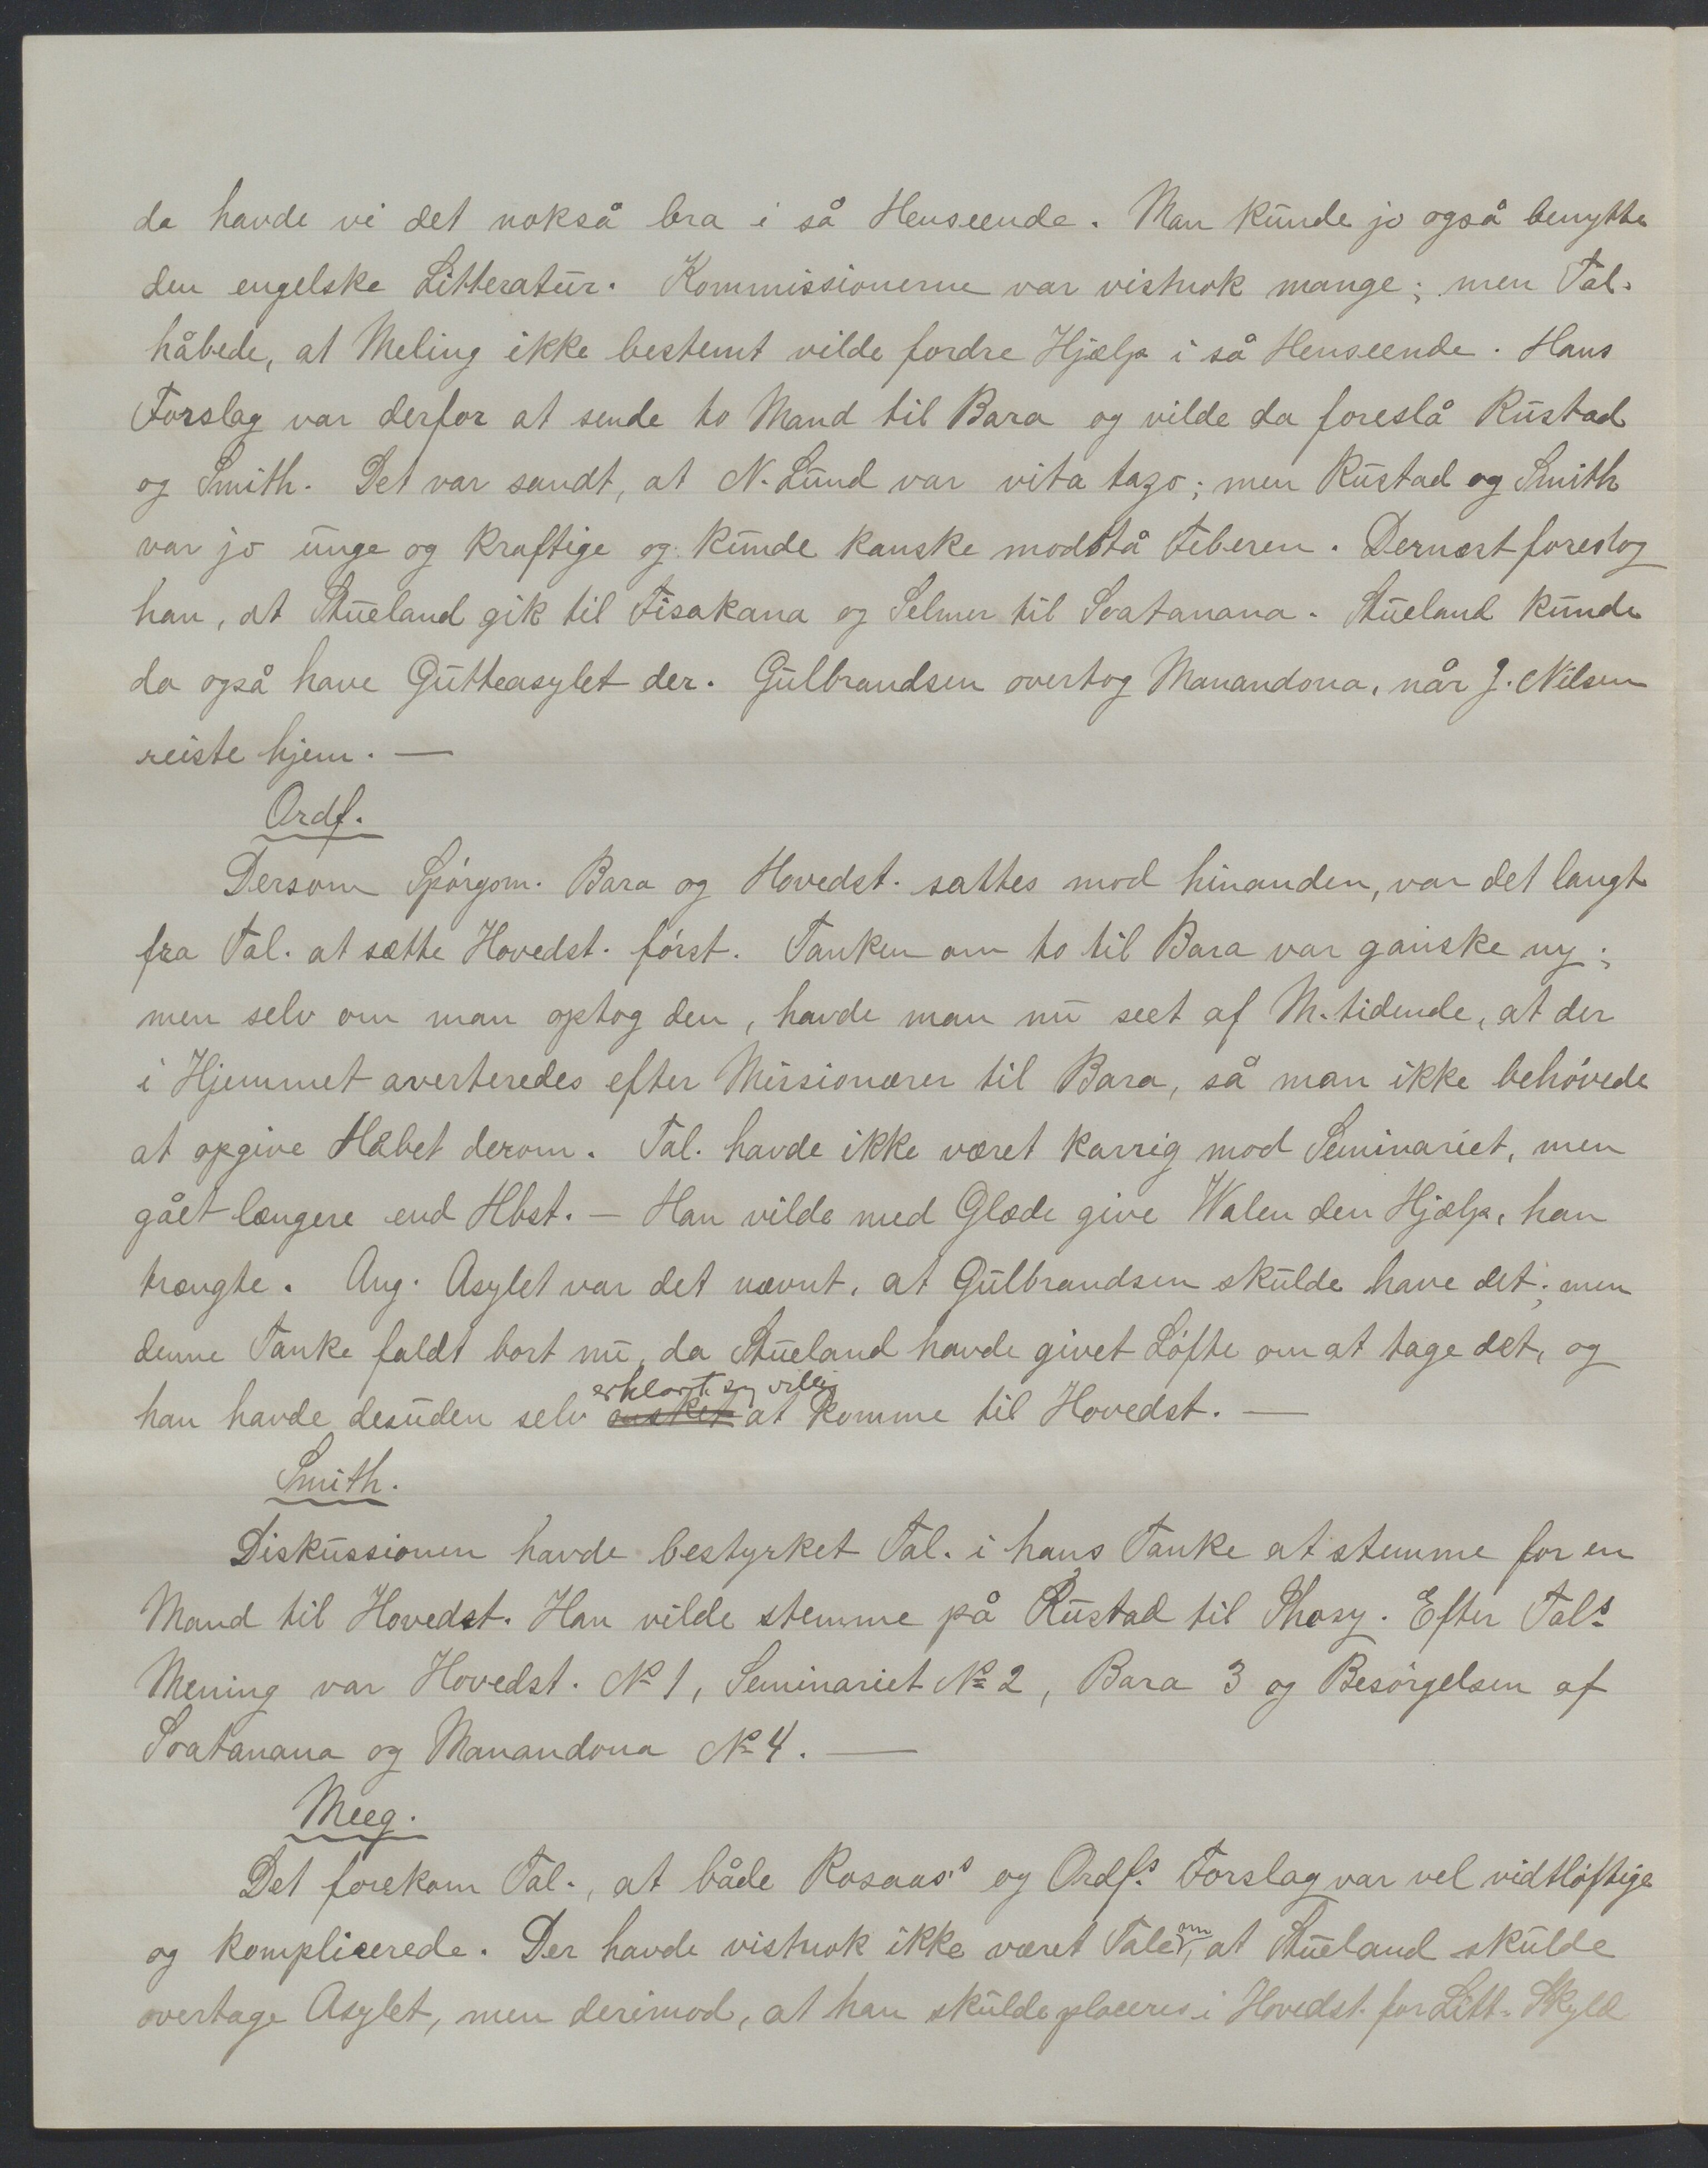 da havde vi det nokså bra i så Henseende. Man kunde jo også benytte
den engelske Litteratur. Kommissionerne var vistnok mange; men Tal.
håbede, at Meling ikke bestemt vilde fordre Hjælp i så Henseende. Hans
Forslag var derfor at sende to Mand til Bara og vilde da foreslå Rustad
og Smith. Det var sandt, at N. Lund var vita tazo; men Rustad og Smith
var jo unge og kraftige og kunde kanske modstå Feberen. Dernæst foreslog
han, at Stueland gik til Fisakana og Selmer til Soatanana. Stueland kunde
da også have Gutteasylet der. Gulbrandsen overtog Manandona, når J. Nilsen
reiste hjem. —
Ordf.
Dersom Spørgsm. Bara og Hovedst. sattes mod hinanden, var det langt
fra Tal. at sætte Hovedst. først. Tanken om to til Bara var ganske ny;
men selv om man optog den, havde man nu seet af M.tidende, at der
i Hjemmet averteredes efter Missionærer til Bara, så man ikke behøvede
at opgive Håbet derom. Tal. havde ikke været karrig mod Seminariet, men
gået længere end Hbst. — Han vilde med Glæde give Walen den Hjælp, han
trængte. Ang. Asylet var det nævnt, at Gulbrandsen skulde have det; men
denne Tanke faldt bort nu, da Stueland havde givet Løfte om at tage det, og
erklært sig villig
han havde desuden selv ønsket at komme til Hovedst. —
Smith.
Diskussionen havde bestyrket Tal. i hans Tanke at stemme for en
Mand til Hovedst. Han vilde stemme på Rustad til Ihosy. Efter Tals
Mening var Hovedst. No 1, Seminariet No 2, Bara 3 og Besørgelsen af
Soatanana og Manandona No 4. —
Meeg.
Det forekom Tal., at både Rosaas's og Ordf.s Forslag var vel vidtløftige
og komplicerede. Der havde vistnok ikke været Tale om, at Stueland skulde
overtage Asylet, men derimod, at han skulde placeres i Hovedst. for Litt. Skyld